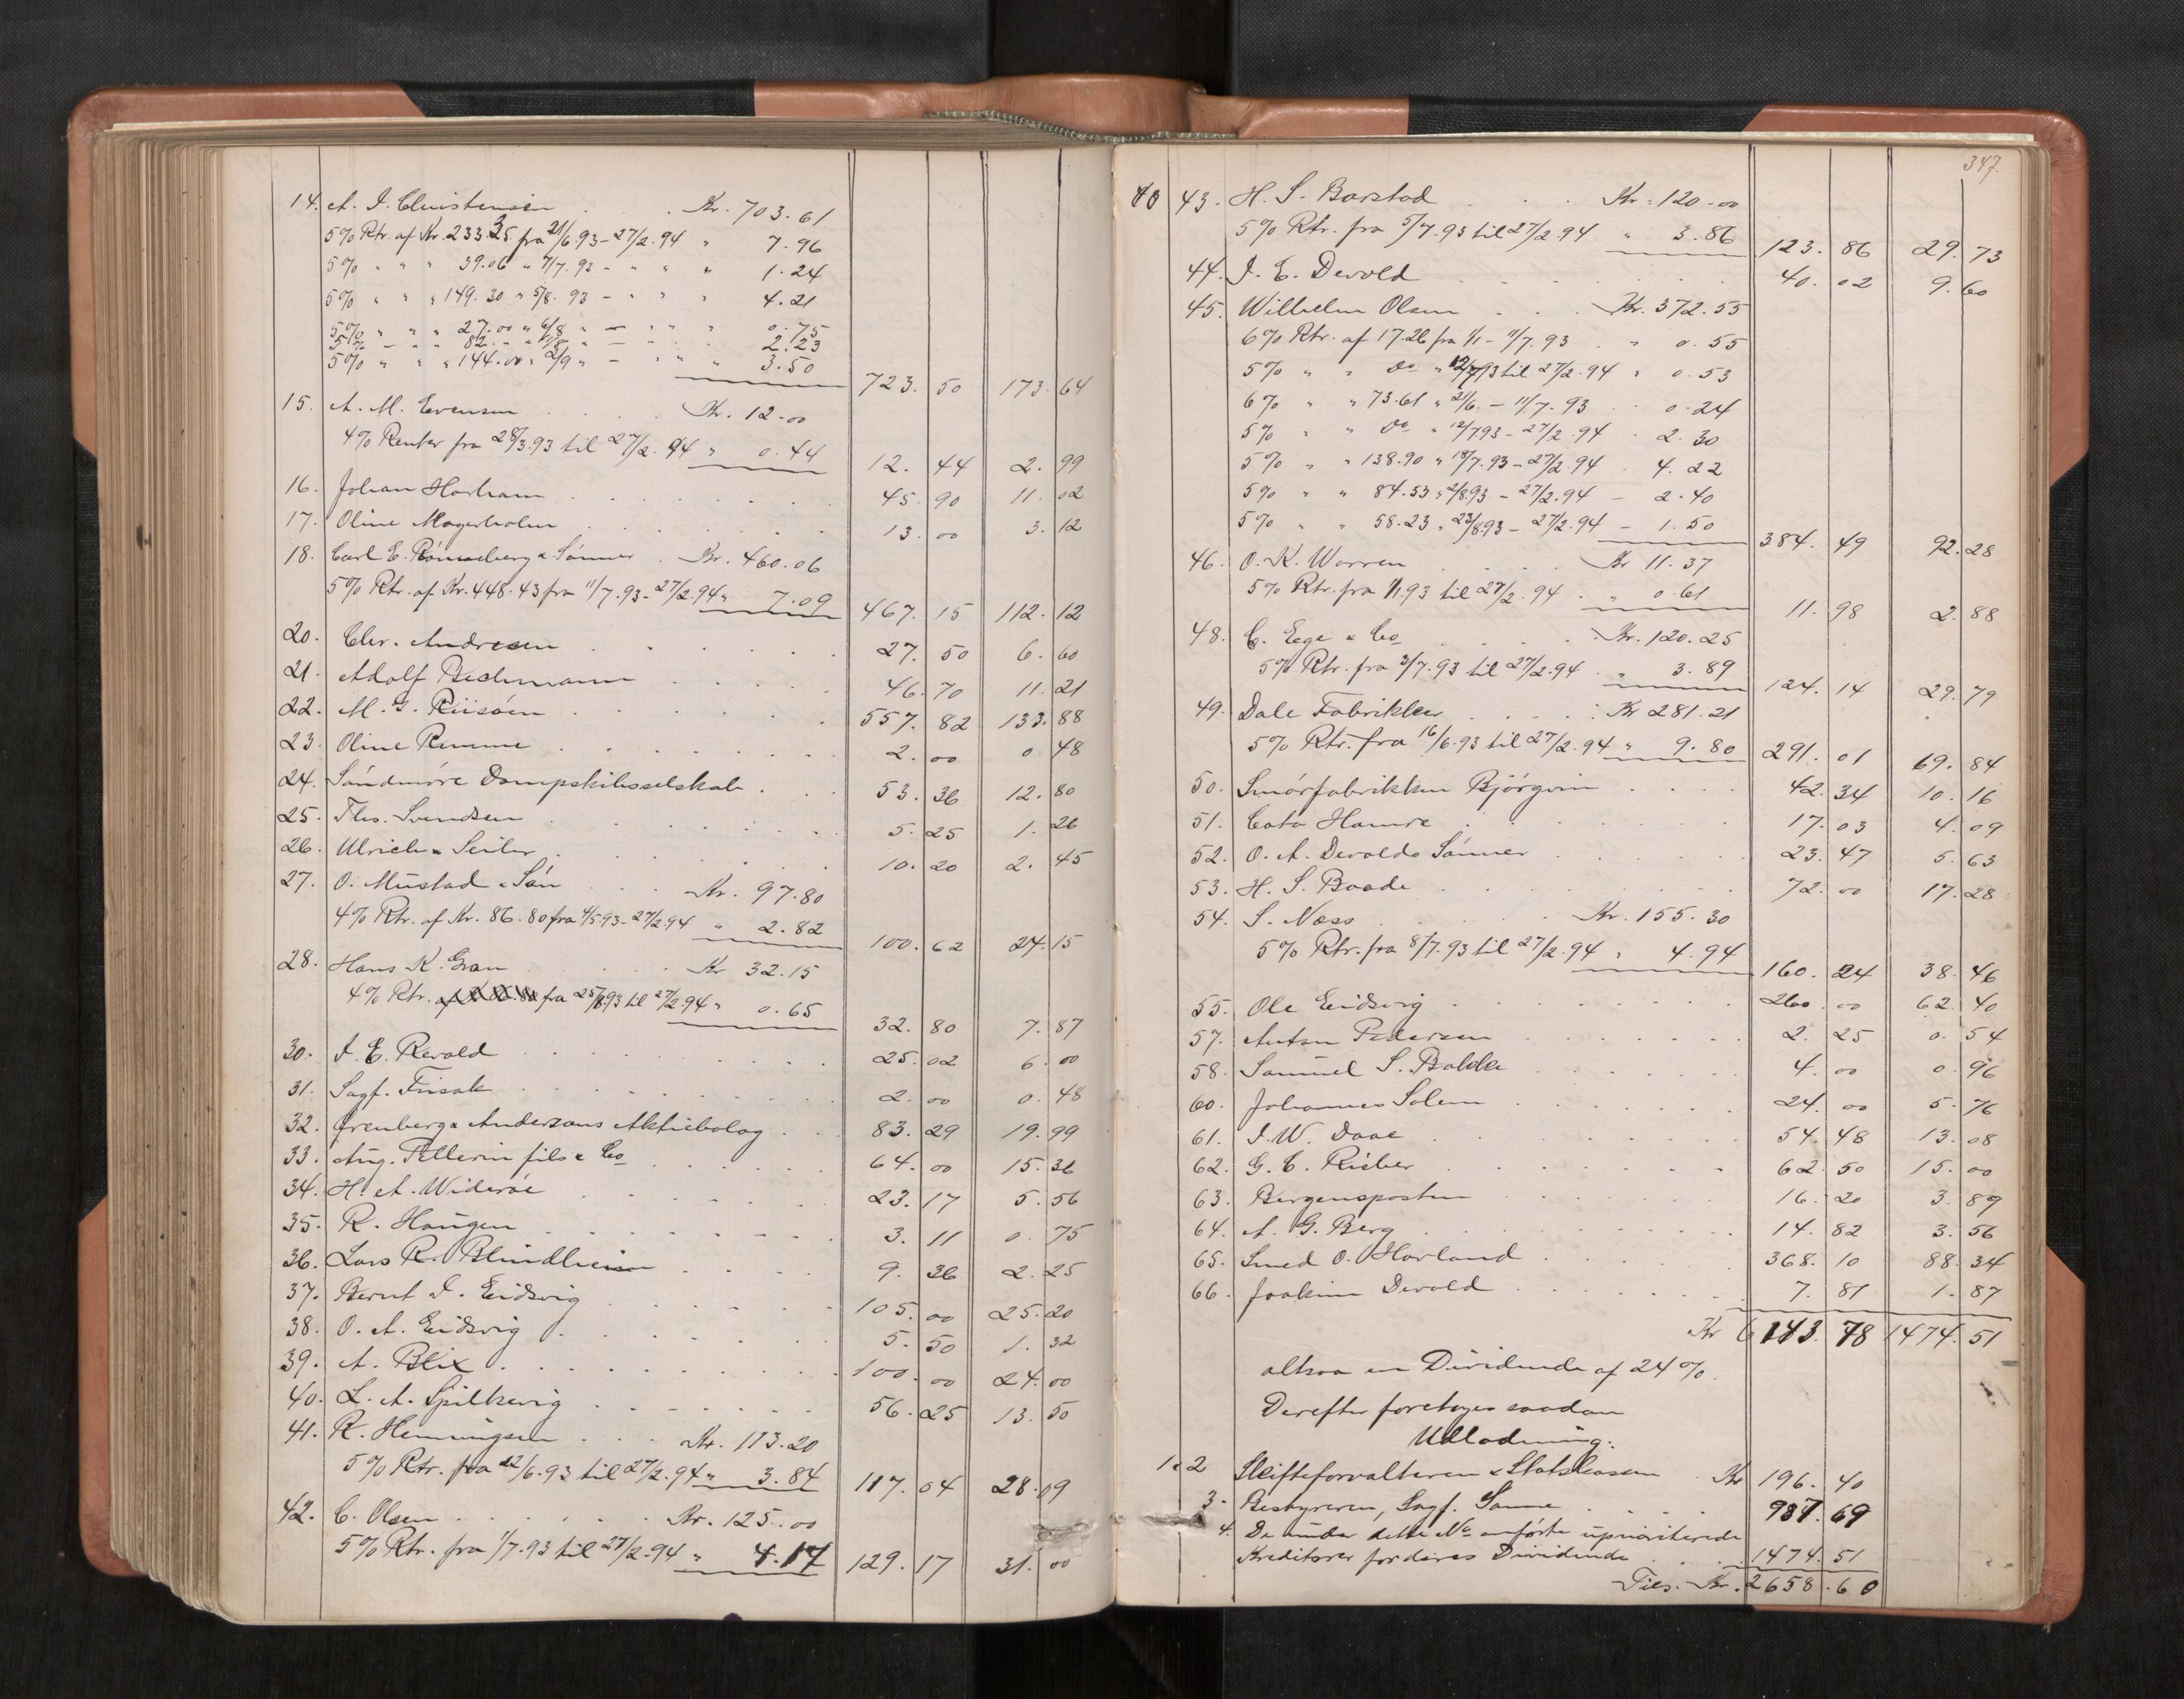 14. A. J. Christensen . . . Kr. 703.61
5% Rtr. af Kr. 233.35 fra 21/6.93 - 27/2.94 " 7.96
5% " " " 39.06 " 7/7.93 - " " " 1.24
5% " " " 149.30 " 5/8.93 - " " " 4.21
5% " " " 27.00 " 6/8 " - " " " 0.75
5% " " " 82. " " " - " " 2.23
5% " " " 144.00 " 2/9 " - " " " 3.50
723. 50 173. 64
15. A. M. Evensen . . . . Kr. 12.00
4% Renter fra 28/3.93 til 27/2.94 " 0.44
12. 44 2. 99
16. Johan Harham . . . . . . 45. 90 11. 02
17. Oline Magerholm . . . . . . 13. 00 3. 12
18. Carl E. Rönneberg & Sønner . Kr. 460.06
5% Rtr. af Kr. 448.43 fra 11/7.93 - 27/2.94 " 7.09
467. 15 112. 12
20. Chr. Andresen . . . . . . 27. 50 6. 60
21. Adolf Bechmann . . . . . 46. 70 11. 21
22. M. G. Riisöen . . . . . . 557. 82 133. 88
23. Oline Remme . . . . . . 2. 00 0. 48
24. Söndmöre Dampskibsselskab . . . 53. 36 12. 80
25. Ths. Svendsen . . . . . . 5. 25 1. 26
26. Ulrich & Seiler . . . . . . 10. 20 2. 45
27. O. Mustad & Sön . . . Kr. 97.80
4% Rtr. af Kr. 86.80 fra 4/5.93 - 27/2.94 " 2.82
100. 62 24. 15
28. Hans K. Gran . . . . Kr 32.15
4% Rtr. fra 25/8.93 til 27/2.94 " 0.65
32. 80 7. 87
30. J. E. Revold . . . . . . 25. 02 6. 00
31. Sagf. Frisak . . . . . . 2. 00 0. 48
32. Grenberg & Anderzons Aktiebolag . . 83. 29 19. 99
33. Aug. Tellerin fils & Co . . . . . 64. 00 15. 36
34. H. A. Widerøe . . . . . . 23. 17 5. 56
35. R. Haugen . . . . . . . 3. 11 0. 75
36. Lars R. Blindheim . . . . . 9. 36 2. 25
37. Bernt I. Eidsvig . . . . . . 105. 00 25. 20
38. O. A. Eidsvig . . . . . . 5. 50 1. 32
39. A. Blix . . . . . . . . 100. 00 24. 00
40. L. A. Spilkevig . . . . . . 56. 25 13. 50
41. R. Henningsen . . . Kr. 113.20
5% Rtr. fra 22/6.93 til 27/2.94 " 3.84 117. 04 28. 09
42. C. Olsen . . . . . Kr. 125.00
5% Rtr. fra 1/7.93 til 27/2.94 " 4.17 129. 17 31. 00
347.
43. H. S. Barstad . . . Kr. 120.00
5% Rtr. fra 5/7.93 til 27/2.94 " 3.86 123. 86 29. 73
44. J. E. Devold . . . . . . 40. 02 9. 60
45. Wilhelm Olsen . . . Kr. 372.55
6% Rtr. af 17.26 fra 1/1 - 11/7.93 . " 0.55
5% " " Do " 12/7.93 til 27/2.94 " 0.53
6% " " 73.61 " 21/6. - 11/7.93 . 0.24
5% " " Do " 12/7.93 - 27/2.94 . 2.30
5% " " 138.90 " 18/7.93 - 27/2.94 . 4.22
5% " " 84.53 " 2/8.93 - 27/2.94 - 2.40
5% " " 58.23 " 23/8.93 - 27/2.94 - 1.50
384. 49 92. 28
46. O. K. Warren . . . . Kr 11.37
5% Rtr. fra 1/1.93 til 27/2.94 . " 0.61
11. 98 2. 88
48. C. Ege & Co . . . . Kr. 120.25
5% Rtr. fra 3/7.93 til 27/2.94 . " 3.89
124. 14 29. 79
49. Dale Fabrikker . . . . Kr 281.21
5% Rtr. fra 16/6.93 til 27/2.94 " 9.80 291. 01 69. 84
50. Smörfabrikken Björgvin . . . . 42. 34 10. 16
51. Cato Hamre . . . . . . 17. 03 4. 09
52. O. A. Devolds Sønner . . . . . 23. 47 5. 63
53. H. S. Baade . . . . . . . 72. 00 17. 28
54. S. Næss . . . . . Kr. 155.30
5% Rtr. fra 8/7.93 til 27/2.94 " 4.94
160. 24 38. 46
55. Ole Eidsvig . . . . . . . 260. 00 62. 40
57. Anton Pedersen . . . . . . 2. 25 0. 54
58. Samuel S. Bakke . . . . . . 4. 00 0. 96
60. Johannes Solem . . . . . . 24. 00 5. 76
61. J. W. Daae . . . . . . . 54. 48 13. 08
62. G. C. Rieber . . . . . . . 62. 50 15. 00
63. Bergensposten . . . . . . 16. 20 3. 89
64. A. G. Berg . . . . . . . 14. 82 3. 56
65. Smed O. Havland . . . . . 368. 10 88. 34
66. Joakim Devold . . . . . . 7. 81 1. 87
Kr 6143. 78 1474. 51
altsaa en Dividende af 24%.
Derefter foretages saadan
Udlodning:
1 & 2 Skifteforvalteren & Statskassen . Kr 196. 40
3. Bestyreren, Sagf. Sanne . . . . 987. 69
4. De under dette No anførte uprioriterede
Kreditorer for deres Dividende . . . 1474. 51
Tils. Kr. 2658. 60